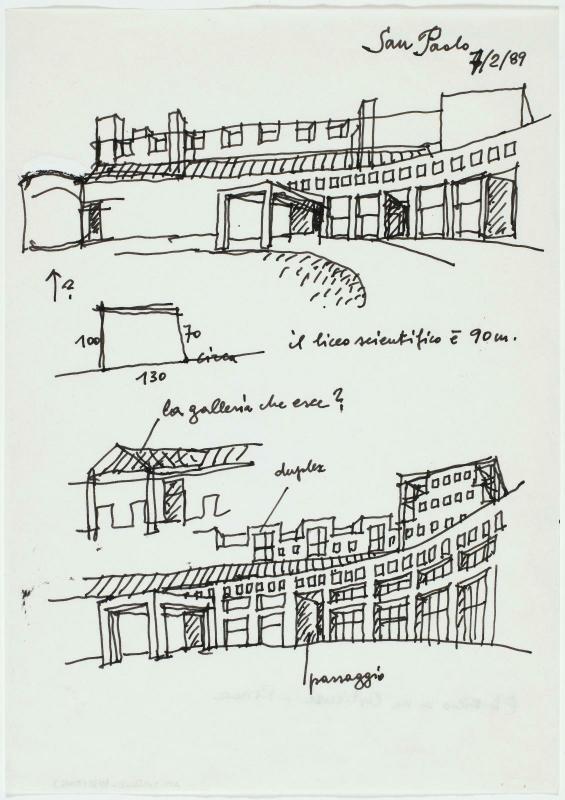 San Paolo
7/2/89
?
100
70
circa
130
il liceo scientifico è 90 m.
la galleria che esce?
duplex
passaggio